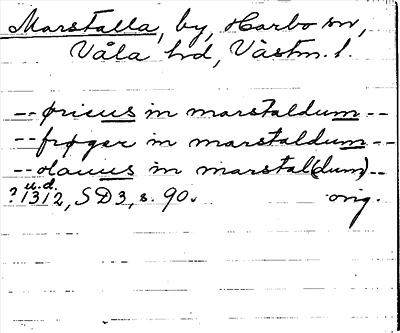 Marstalla, by, Harbo sn,
Våla hd, Västm. l.
-- øricus in marstaldum --
-- frøger in marstaldum --
-- olauus in marstal(dum) --
u.d.
? 1312, SD3, s. 90. orig.